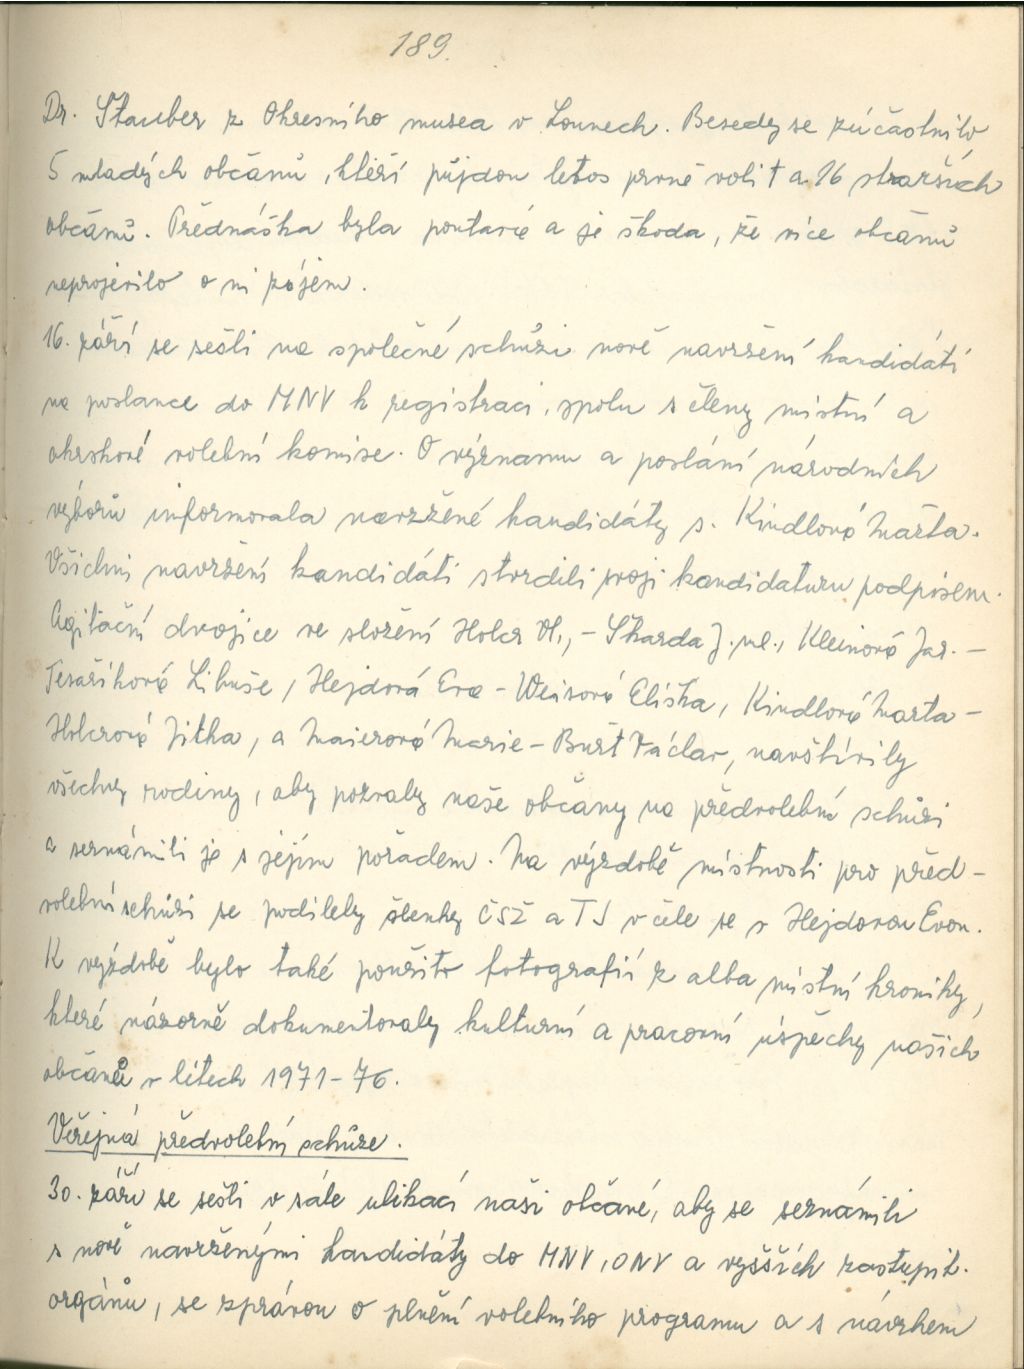 189.
Dr. Štauber z Okresního musea v Lounech. Besedy se zúčastnilo
5 mladých občanů, kteří půjdou letos prvně volit a 16 starších
občanů. Přednáška byla poutavá a je škoda, že více občanů
neprojevilo o ni zájem.
16. září se sešli na společné schůzi nově navržení kandidáti
na poslance do MNV k registraci, spolu s členy místní a
okrskové volební komise. O významu a poslání národních
výborů informovala navržené kandidáty s. Kindlová Marta.
Všichni navržení kandidáti stvrdili svoji kandidaturu podpisem.
Agitační dvojice ve složení Holcr Vl., - Škarda J. ml., Kleinová Jar. -
Tesaříková Libuše, Hejdová Eva - Weisová Eliška, Kindlová Marta -
Holcrová Jitka, a Maierová Marie - Burt Václav, navštívily
všechny rodiny, aby pozvaly naše občany na předvolební schůzi
a seznámili je s jejím pořadem. Na výzdobě místnosti pro před-
volební schůzi se podílely členky ČSŽ a TJ v čele se s Hejdovou Evou.
K výzdobě bylo také použito fotografií z alba místní kroniky,
které názorně dokumentovaly kulturní a pracovní úspěchy našich
občanů v letech 1971-76.
Veřejná předvolební schůze.
30. září se sešli v sále ubikací naši občané, aby se seznámili
s nově navrženými kandidáty do MNV, ONV a vyšších zastupit.
orgánů, se zprávou o plnění volebního programu a s návrhem